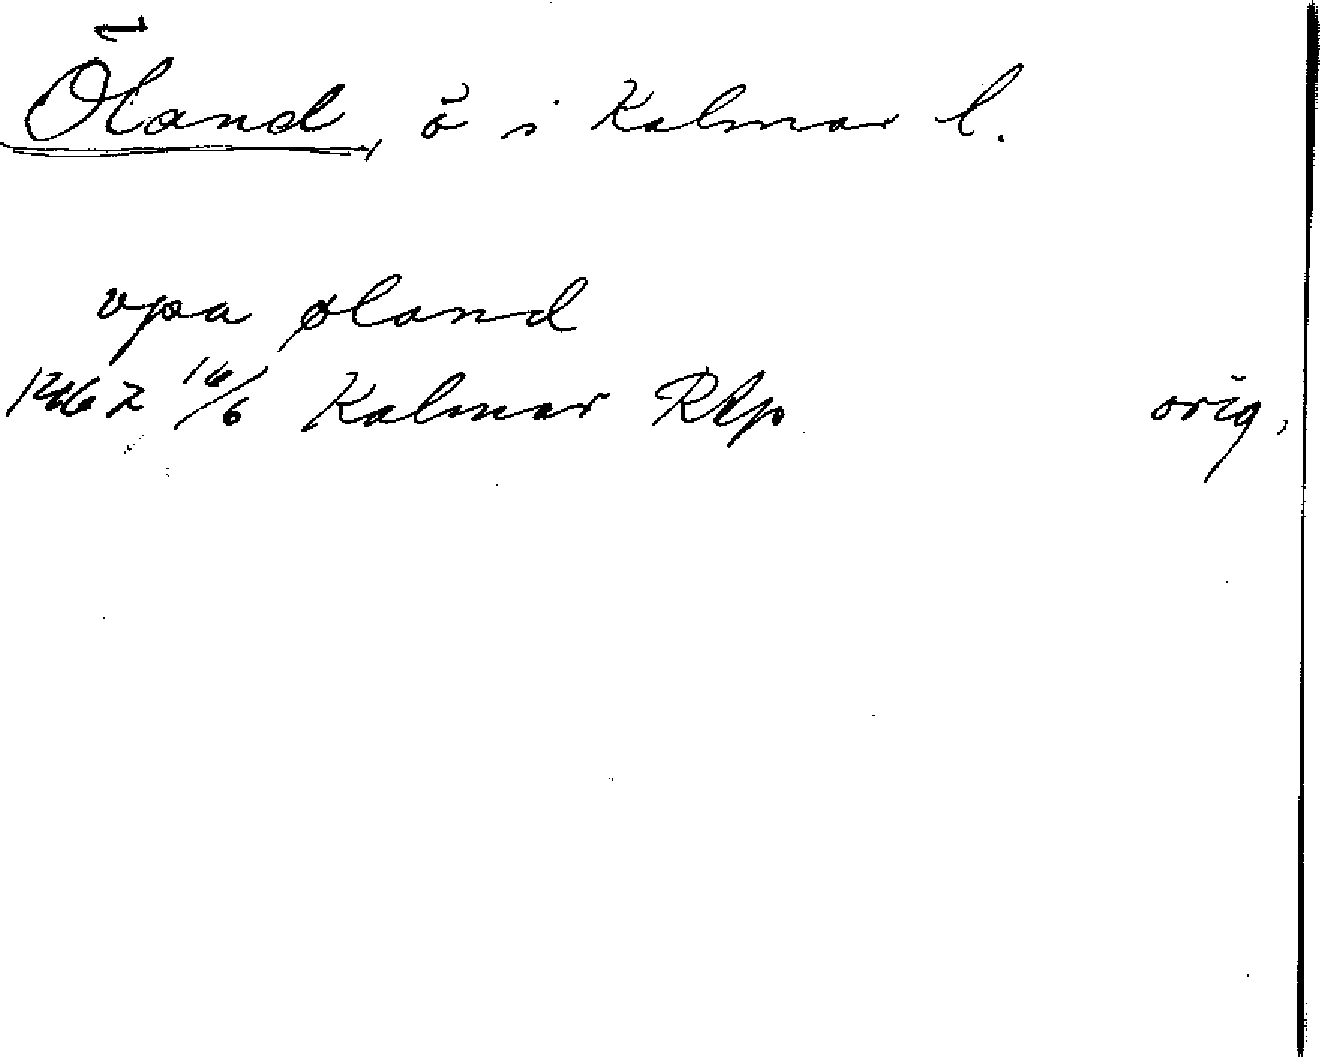 Öland, ö i Kalmar l.
vpa øland
1462 16/6 Kalmar RAp orig.